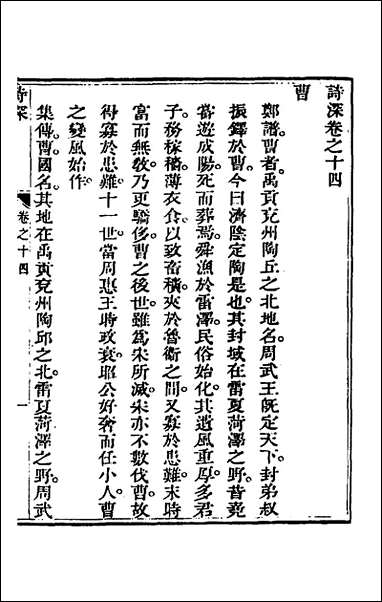 詩深卷之十四
曹
鄭譜曹者禹貢兗州陶丘之北地名周武王既定天下封弟叔
振鐸於曹今曰濟陰定陶是也其封域在雷夏菏澤之野昔堯
嘗遊成陽死而葬焉舜漁於雷澤民俗始化其遺風重厚多君
子務稼穡薄衣食以致畜積夾於魯衛之間又寡於患難末時
富而無教乃更驕侈曹之後世雖為宋所滅宋亦不數伐曹故
得寡於患難十一世當周惠王時政衰昭公好奢而任小人曹
之變風始作
集傳曹國名其地在禹貢兗州陶邱之北雷夏菏澤之野周武
詩深
卷之十四
一